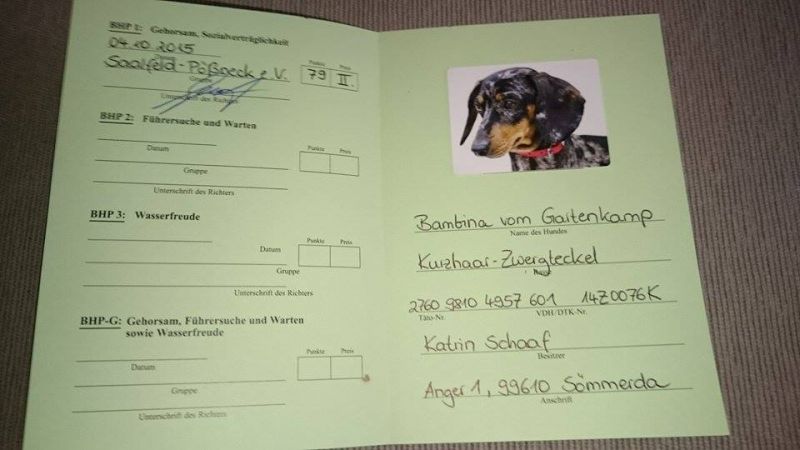 BHP 1: Gehorsam, Sozialverträglichkeit
04.10.2015
Datum
Punkte Preis
Saalfeld-Pößneck e.V. 79 II.
Gruppe
Unterschrift des Richters
BHP 2: Führersuche und Warten
Punkte Preis
Datum
Gruppe
Unterschrift des Richters
BHP 3: Wasserfreude
Punkte Preis
Datum
Gruppe
Unterschrift des Richters
BHP-G: Gehorsam, Führersuche und Warten
sowie Wasserfreude
Punkte Preis
Datum
Gruppe
Unterschrift des Richters
Bambina vom Gartenkamp
Name des Hundes
Kurzhaar-Zwergteckel
Rasse
2760 9810 4957 601 14Z0076K
Täto-Nr. VDH/DTK-Nr.
Katrin Schaaf
Besitzer
Anger 1, 99610 Sömmerda
Anschrift